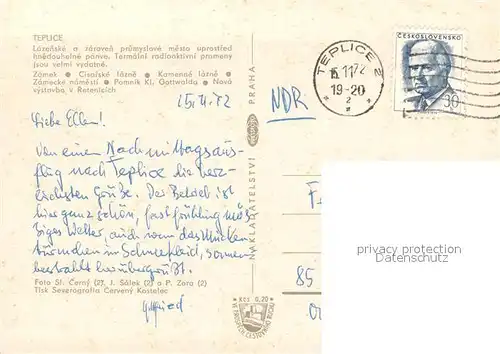 TEPLICE
Lázeňské a zároveň průmyslové město uprostřed
hnědouhelné pánve. Termální radioaktivní prameny
jsou velmi vydatné.
Zámek ● Císařské lázně ● Kamenné lázně ●
Zámecké náměstí ● Pomník Kl. Gottwalda ● Nová
výstavba v Řetenicích
15.11.72
Liebe Ellen!
Von einem Nachmittagsaus-
flug nach Teplice die herz-
lichsten Grüße. Der Betrieb ist
hier ganz schön, fast frühlingmäß
iges Wetter, auch wenn das
im Schneekleid, sonnen-
bestrahlt herübergrüßt.
Gottfried
Foto St. Černý (2), J. Sálek (2) a P. Zora (2)
Tisk Severografia Červený Kostelec
NAKLADATELSTVÍ
PRAHA
Kčs 0,20
NDR
TEPLICE 2
15.11.72
19-20
2
ČESKOSLOVENSKO
30
F
85
privacy protection
Datenschutz